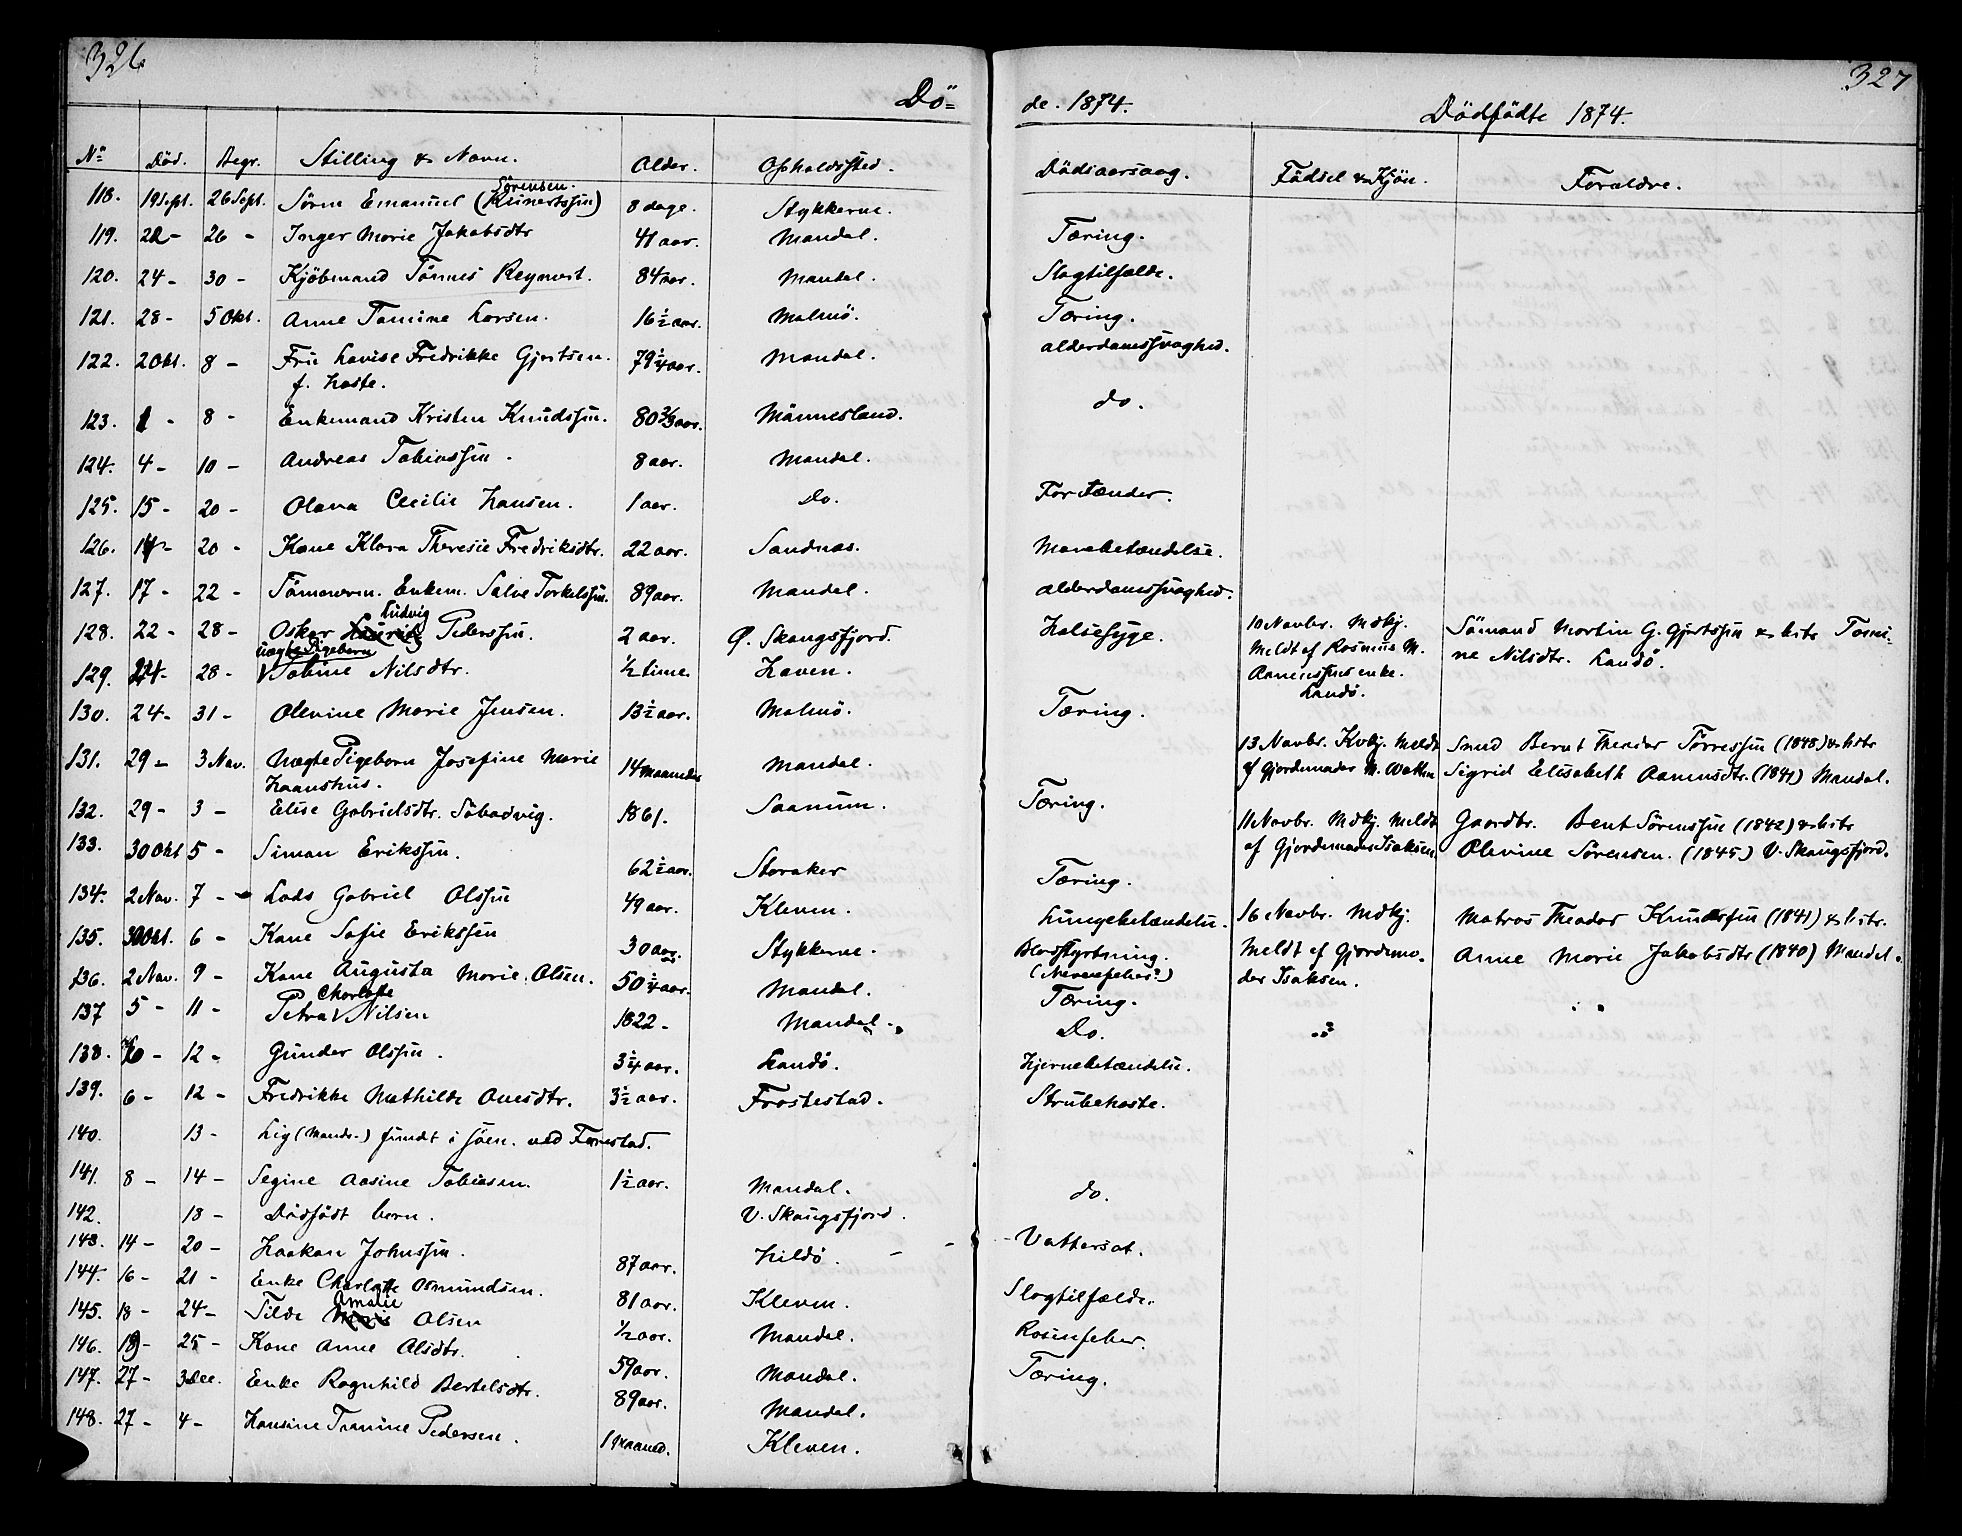 326
Dö=
No Död. Begr. Stilling & Navn. Alder. Opholdssted.
118. 19 Sept. 26 Sept. Sören Emanuel (Sörensen. 8 dage. Stykkerne.
119. 22 - 26 - Inger Marie Jakobsdtr 41 aar. Mandal.
120. 24 - 30 - Kjöbmand Tönnes Reymert. 84 aar. Mandal.
121. 28 - 5 Okt. Anne Tomine Larsen. 16½ aar. Malmö.
122. 2 Okt. 8 - Fru Lovise Fredrikke Gjertsen. 79¼ aar. Mandal.
f. Haste.
123. 1 - 8 - Enkemand Kristen Knudssen. 80⅔ aar. Männesland.
124. 4 - 10 - Andreas Tobiassen. 8 aar. Mandal.
125. 15 - 20 - Olava Cecilie Hansen. 1 aar. Do.
126. 14 - 20 - Kone Klara Theresie Fredriksdtr. 22 aar. Sandnæs.
127. 17 - 22 - Tömmerm. Enkem. Salve Torkelssen. 89 aar. Mandal.
128. 22 - 28 - Oskar Ludvig Pederssen. 2 aar. Ø. Skougsfjord.
129. 24 - 28 - uægte Pigebarn Tobine Nilsdtr. ½ time. Haven.
130. 24 - 31 - Olevine Marie Jensen. 13½ aar. Malmö.
131. 29 - 3 Nov. Uægte Pigebarn Josefine Marie 14 maaneder Mandal.
Haanshus.
132. 29 - 3 - Elise Gabrielsdtr. Säbodvig. 1861. Saanum.
133. 30 Okt 5 - Simon Erikssen. 62½ aar. Storaker
134. 2 Nov. 7 - Lods Gabriel Olssen 49 aar. Kleven.
135. 30 Okt. 6 - Kone Sofie Erikssen 30 aar. Stykkerne.
136. 2 Nov. 9 - Kone Augusta Marie Olsen. 50¼ aar. Mandal.
137 5 - 11 - Petra Charlotte Nilsen 1822 - Mandal.
138. 10 - 12 - Gunder Olssen. 3¼ aar. Landö.
139. 6 - 12 - Fredrikke Mathilde Ovesdtr. 3½ aar. Frostestad.
140. 13 - Lig (Mands.) fundt i sjöen. ved Færestad.
141. 8 - 14 - Segine Aasine Tobiasen. 1½ aar. Mandal.
142. 18 - Dödfödt barn. V. Skougsfjord.
143. 14 - 20 - Haakon Johnssen. 87 aar. Hildö.
144. 16 - 21 - Enke Charlotte Osmundsen. 81 aar. Kleven.
145. 18 - 24 - Tilde Amalie Olsen ½ aar. Mandal.
146. 19 - 25 - Kone Anne Olsdtr. 59 aar. Mandal.
147. 27 - 3 Dec. Enke Ragnhild Bertelsdtr. 89 aar. Mandal.
148. 27 - 4 - Hansine Tranine Pedersen. 1 maaned. Kleven.
327
de. 1874. Dödfödte 1874.
Dödsaarsag. Födsel & Kjön. Forældre.
Tæring.
Slagtilfælde.
Tæring.
alderdomssvaghed.
do.
For Tænder.
Mavebetændelse.
alderdomssvaghed.
Halsesyge. 10 Novbr. Mdkj. Sömand Martin G. Gjertssen & hstr Tomi-
Meldt af Rasmus M. ne Nilsdtr. Landö.
Aanenssens enke.
Landö.
Tæring.
13 Novbr. Kvkj. Meldt Smed Bernt Theodor Törressen (1848) & hstr
af Gjordemoder M. Watten Sigrid Elisabeth Aanensdtr. (1841) Mandal.
Tæring.
11 Novbr. Mdkj. Meldt Gaardbr. Bent Sörenssen (1842) & hstr
af Gjordemoder Isaksen. Olevine Sörensen. (1845) V. Skougsfjord.
Tæring.
Lungebetændelse. 16 Novbr. Mdkj. Matros Theodor Knudssen (1841) & hstr.
Blodstyrtning. Meldt af Gjordemo- Anne Marie Jakobsdtr (1840) Mandal.
(Nervefeber?) der Isaksen.
Tæring.
Do.
Hjernebetændelse.
Strubehoste.
do.
Vattersot.
Slagtilfælde.
Rosenfeber.
Tæring.